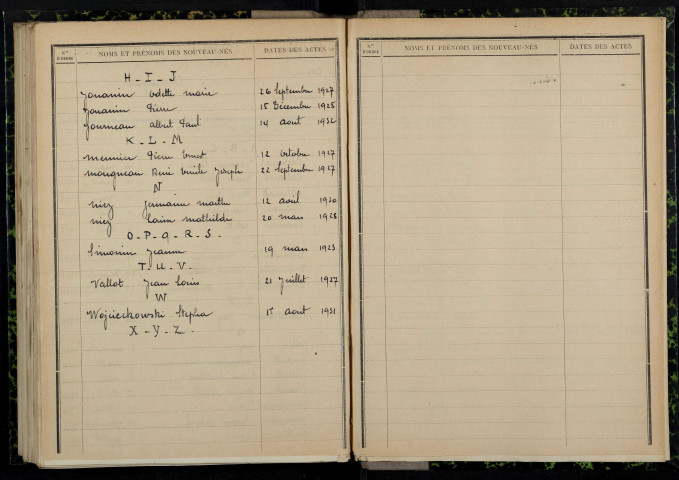 Nos D'ORDRE NOMS ET PRÉNOMS DES NOUVEAU-NÉS DATES DES ACTES
H - I - J
Jouanin Odette Marie 26 Septembre 1927
Jouanin Pierre 15 Décembre 1928
Journeau Albert Paul 14 août 1932
K - L - M
Meunier Pierre Ernest 12 Octobre 1927
Mougneau René Emile Joseph 22 Septembre 1927
N
Niez Germaine Marthe 12 avril 1920
Niez Mathilde 20 mars 1928
O - P - Q - R - S -
Simonin Jeanne 19 mars 1923
T - U - V -
Vallot Jean Louis 21 Juillet 1927
W
Wojciechowski Stepha 1r août 1931
X - Y - Z -
Nos D'ORDRE NOMS ET PRÉNOMS DES NOUVEAU-NÉS DATES DES ACTES